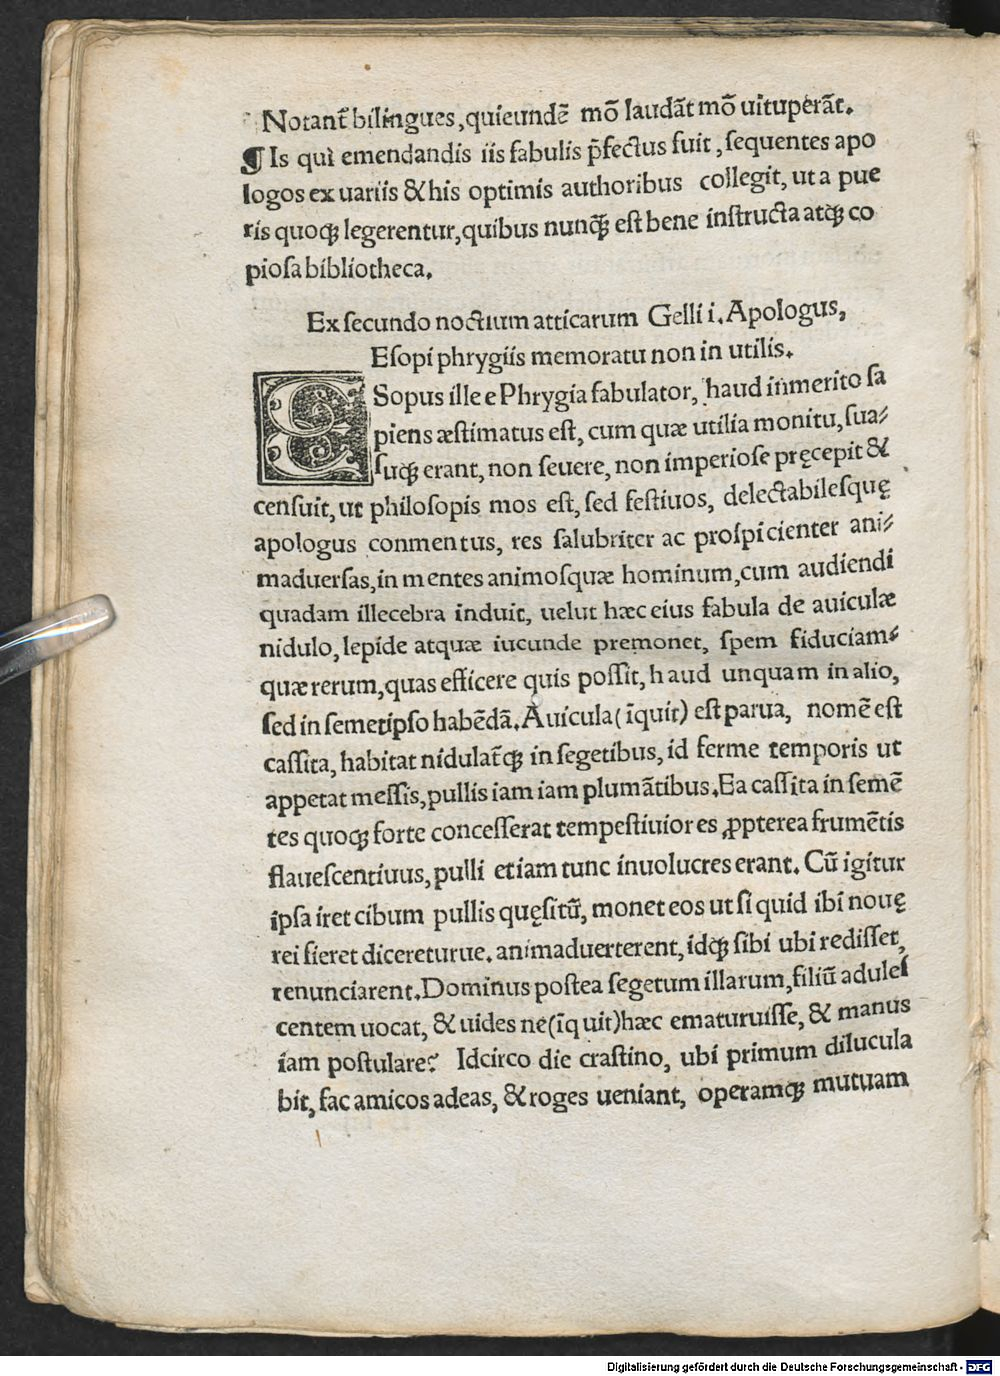 Notant᷑ bilingues, quieundē mō laudāt mō uituperāt.
¶ Is qui emendandis iis fabulis p̄fectus fuit, ſequentes apo
logos ex uariis & his optimis authoribus collegit, ut a pue
ris quoqȝ legerentur, quibus nunqȝ eſt bene inſtructa atqȝ co
pioſa bibliotheca.
Ex ſecundo noctium atticarum Gelli i. Apologus,
Eſopi phrygiis memoratu non in utilis.
ESopus ille e Phrygia fabulator, haud inmerito ſa
piens æſtimatus eſt, cum quæ utilia monitu, ſua⸗
ſuqȝ erant, non ſeuere, non imperioſe pręcepit &
cenſuit, ut philoſopis mos eſt, ſed feſtiuos, delectabileſquę
apologus conmentus, res ſalubriter ac proſpicienter ani⸗
maduerſas, in mentes animoſquæ hominum, cum audiendi
quadam illecebra induit, uelut hæc eius fabula de auiculæ
nidulo, lepide atquæ iucunde premonet, ſpem fiduciam⸗
quæ rerum, quas efficere quis poſſit, haud unquam in alio,
ſed in ſemetipſo habēdā. Auicula (īquit) eſt parua, nomē eſt
caſſita, habitat nidulat̄qȝ in ſegetibus, id ferme temporis ut
appetat meſſis, pullis iam iam plumātibus. Ea caſſita in ſemē
tes quoqȝ forte conceſſerat tempeſtiuiores ꝓpterea frumētis
flaueſcentiuus, pulli etiam tunc inuolucres erant. Cū igitur
ipſa iret cibum pullis quęſitū, monet eos ut ſi quid ibi nouę
rei fieret dicereturue. animaduerterent, idqȝ ſibi ubi rediſſet,
renunciarent. Dominus poſtea ſegetum illarum, filiū aduleſ
centem uocat, & uides ne (īquit) hæc ematuruiſſe, & manus
iam poſtulare? Idcirco die craſtino, ubi primum dilucula
bit, fac amicos adeas, & roges ueniant, operamqȝ mutuam
Digitalisierung gefördert durch die Deutsche Forschungsgemeinschaft - DFG